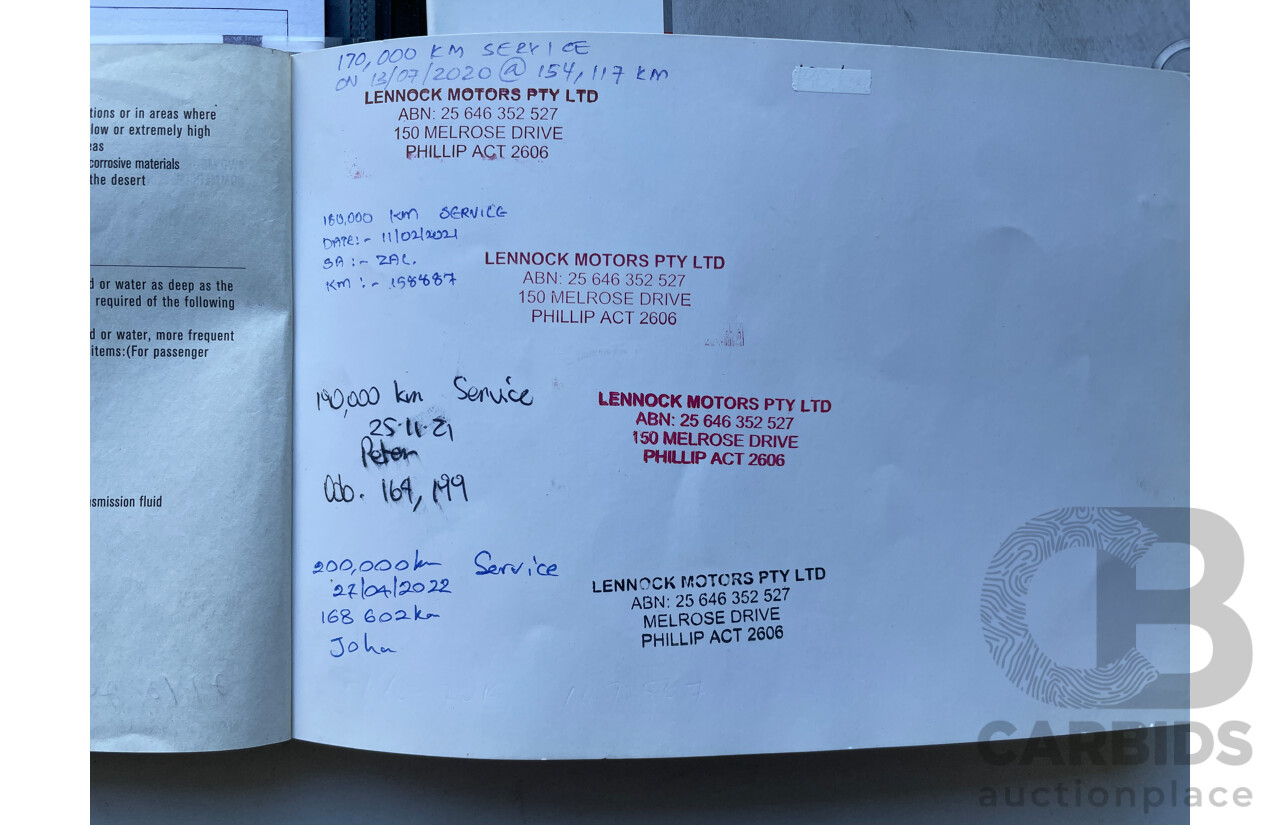 tions or in areas where
low or extremely high
eas
corrosive materials
the desert
d or water as deep as the
required of the following
d or water, more frequent
items:(For passenger
smission fluid
170,000 KM SERVICE
ON 13/07/2020 @ 154,117 KM
LENNOCK MOTORS PTY LTD
ABN: 25 646 352 527
150 MELROSE DRIVE
PHILLIP ACT 2606
180,000 KM SERVICE
DATE:- 11/02/2021
SA:- ZAC.
KM:- 158887
LENNOCK MOTORS PTY LTD
ABN: 25 646 352 527
150 MELROSE DRIVE
PHILLIP ACT 2606
190,000 km Service
25-11-21
Peter
Odo. 164,199
LENNOCK MOTORS PTY LTD
ABN: 25 646 352 527
150 MELROSE DRIVE
PHILLIP ACT 2606
200,000km Service
27/04/2022
168 602km
John
LENNOCK MOTORS PTY LTD
ABN: 25 646 352 527
MELROSE DRIVE
PHILLIP ACT 2606
CARBIDS
auctionplace